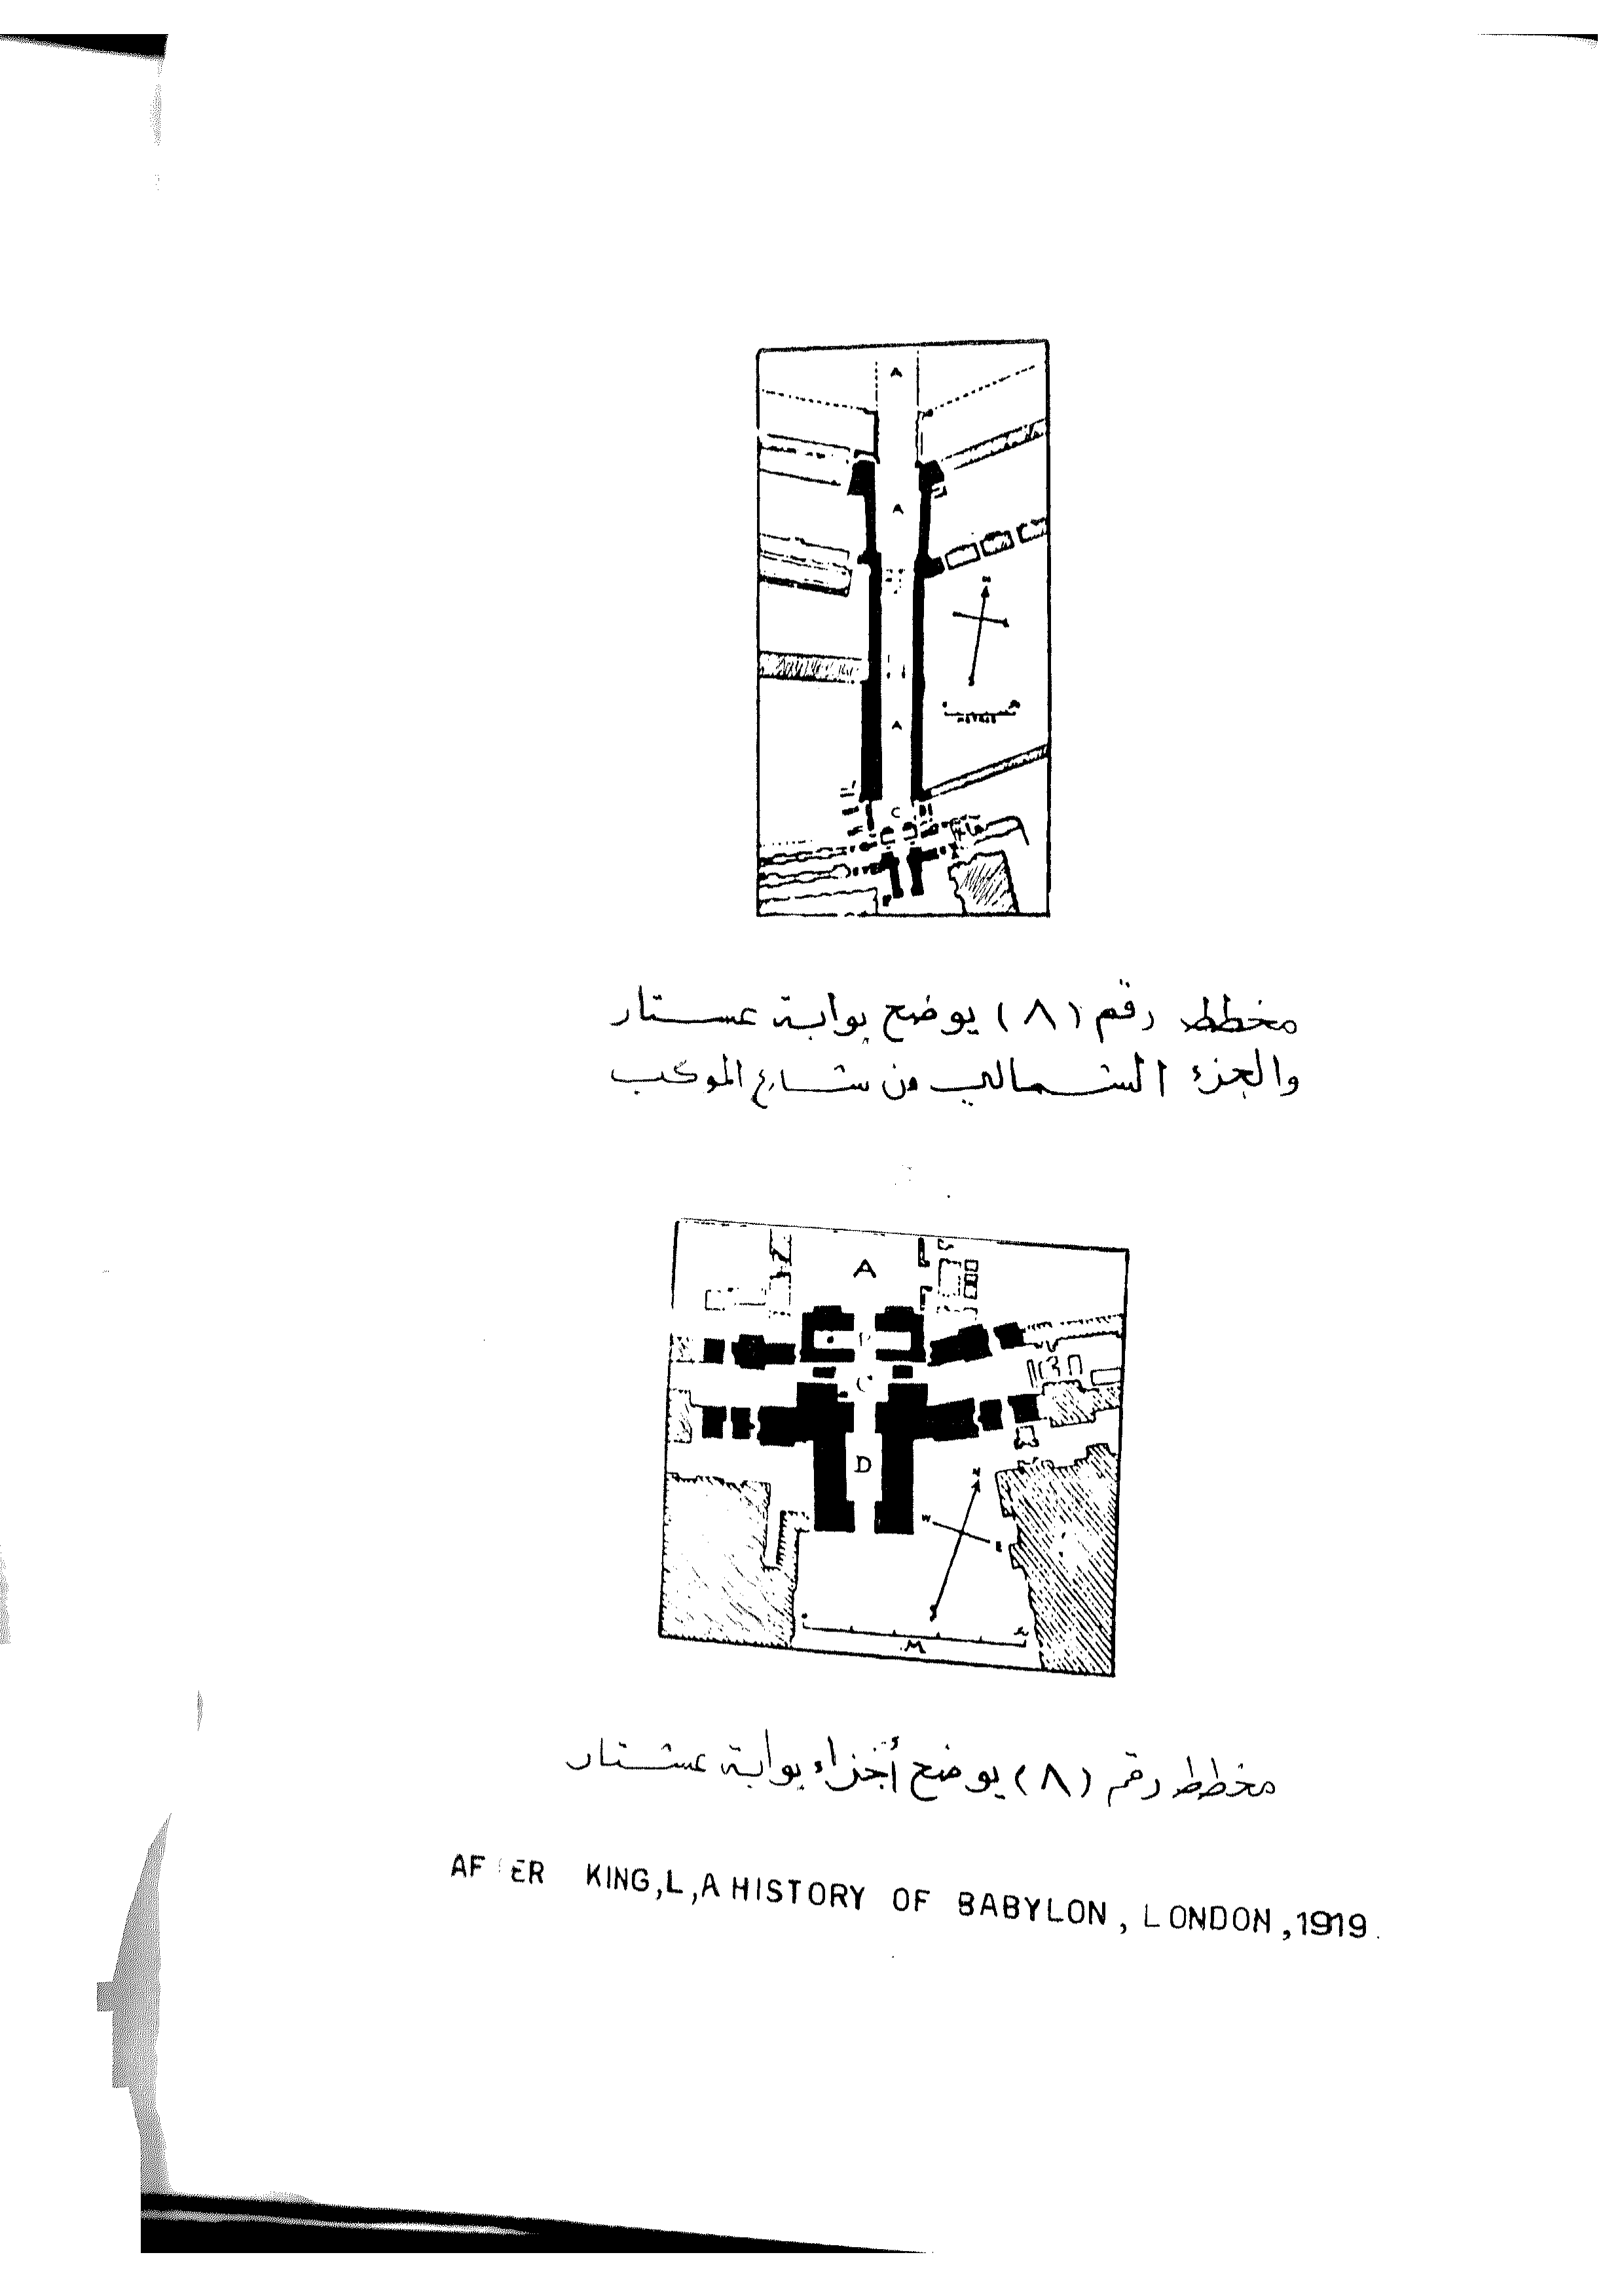 A
A
N
S
METRES
A
C
مخطط رقم (٨) يوضح بوابة عستار
والجزء الشمالي من شارع الموكب
A
C
D
N
W
E
S
M
مخطط رقم (٨) يوضح أجزاء بوابة عشتار
AFTER KING,L,A HISTORY OF BABYLON, LONDON,1919.